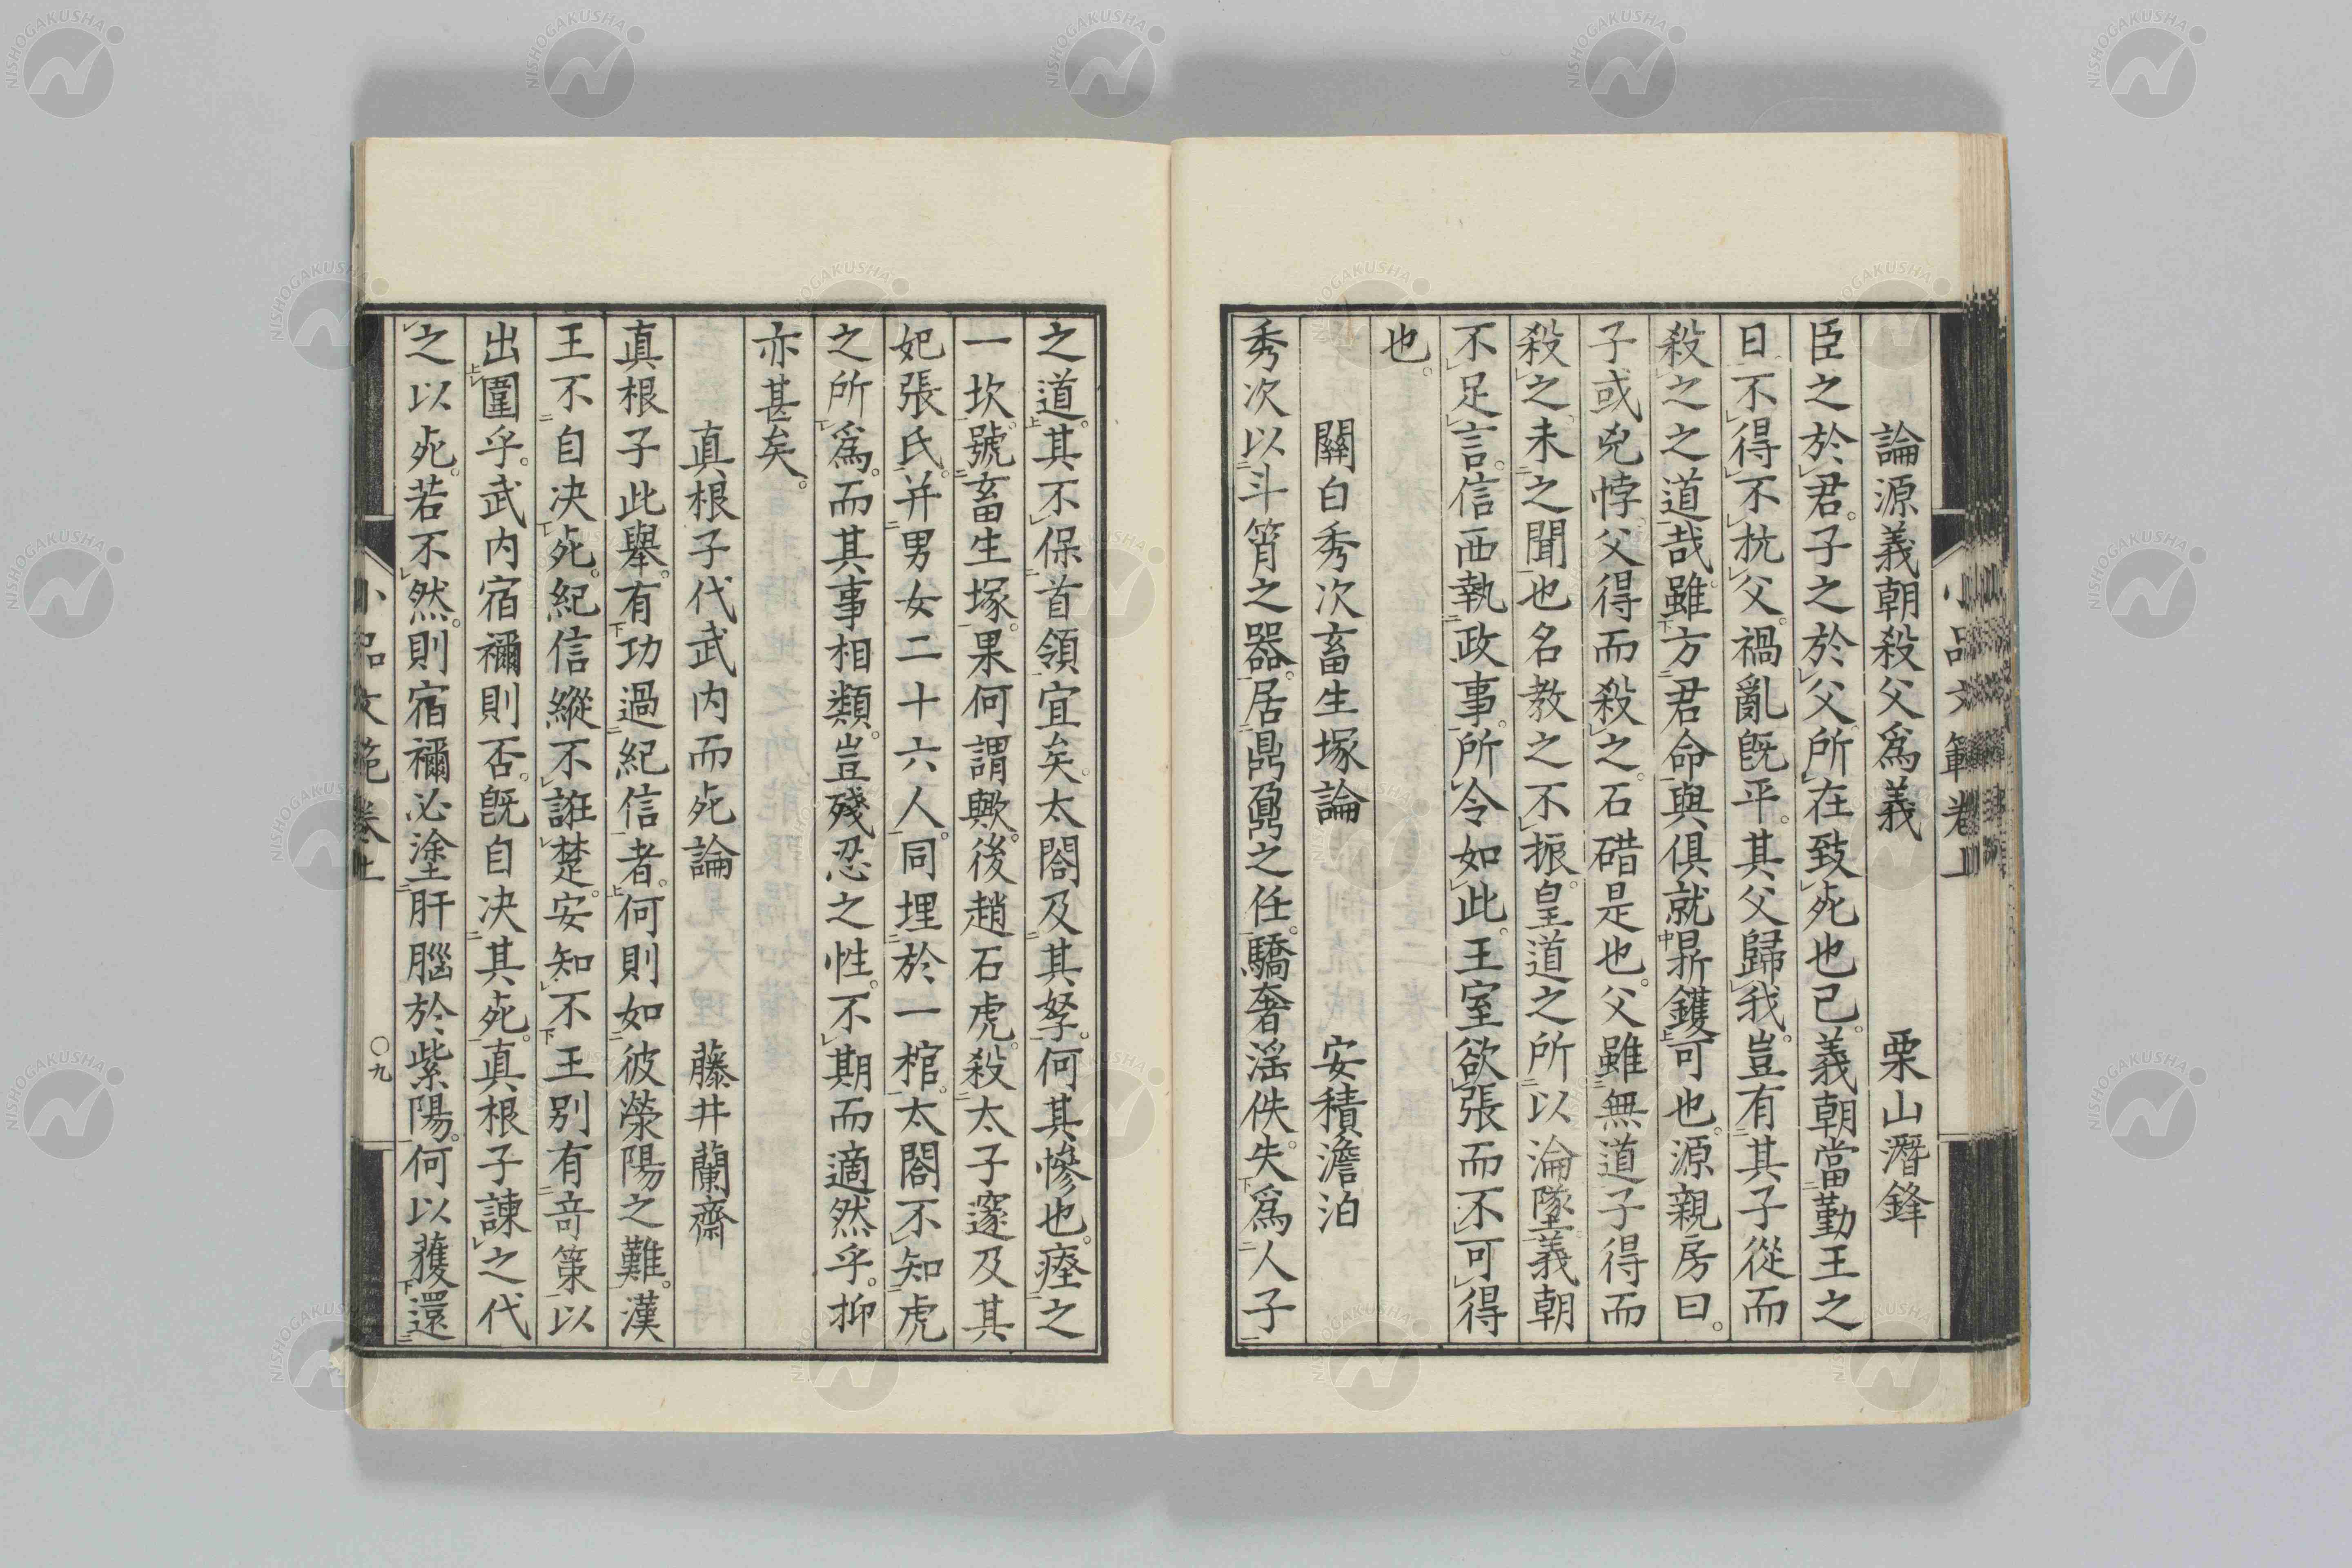 論源義朝殺父爲義　栗山潛鋒
臣之於君。子之於父。所在致死也已。義朝當勤王之
日。不得不抗父。禍亂既平。其父歸我。豈有其子從而
殺之之道哉。雖方君命與俱就鼎鑊可也。源親房曰。
子或兇悖。父得而殺之。石碏是也。父雖無道。子得而
殺之。未之聞也。名教之不振。皇道之所以淪墜。義朝
不足言。信西執政事。所令如此。王室欲張而不可得
也。
關白秀次畜生塚論　安積澹泊
秀次以斗筲之器。居鼎鼐之任。驕奢淫佚。失爲人子
之道。其不保首領宜矣。太閤及其孥。何其慘也。瘞之
一坎。號畜生塚。果何謂歟。後趙石虎。殺太子邃及其
妃張氏。并男女二十六人。同埋於一棺。太閤不知虎
之所爲。而其事相類。豈殘忍之性。不期而適然乎。抑
亦甚矣。
真根子代武内而死論　藤井蘭齋
真根子此舉。有功過紀信者。何則如彼滎陽之難。漢
王不自决死。紀信縱不誑楚。安知不王別有竒策以
出圍乎。武内宿禰則否。既自决其死。真根子諫之代
之以死。若不然。則宿禰必塗肝腦於紫陽。何以獲還
小品文範卷上
小品文範卷上
〇九
NISHOGAKUSHA